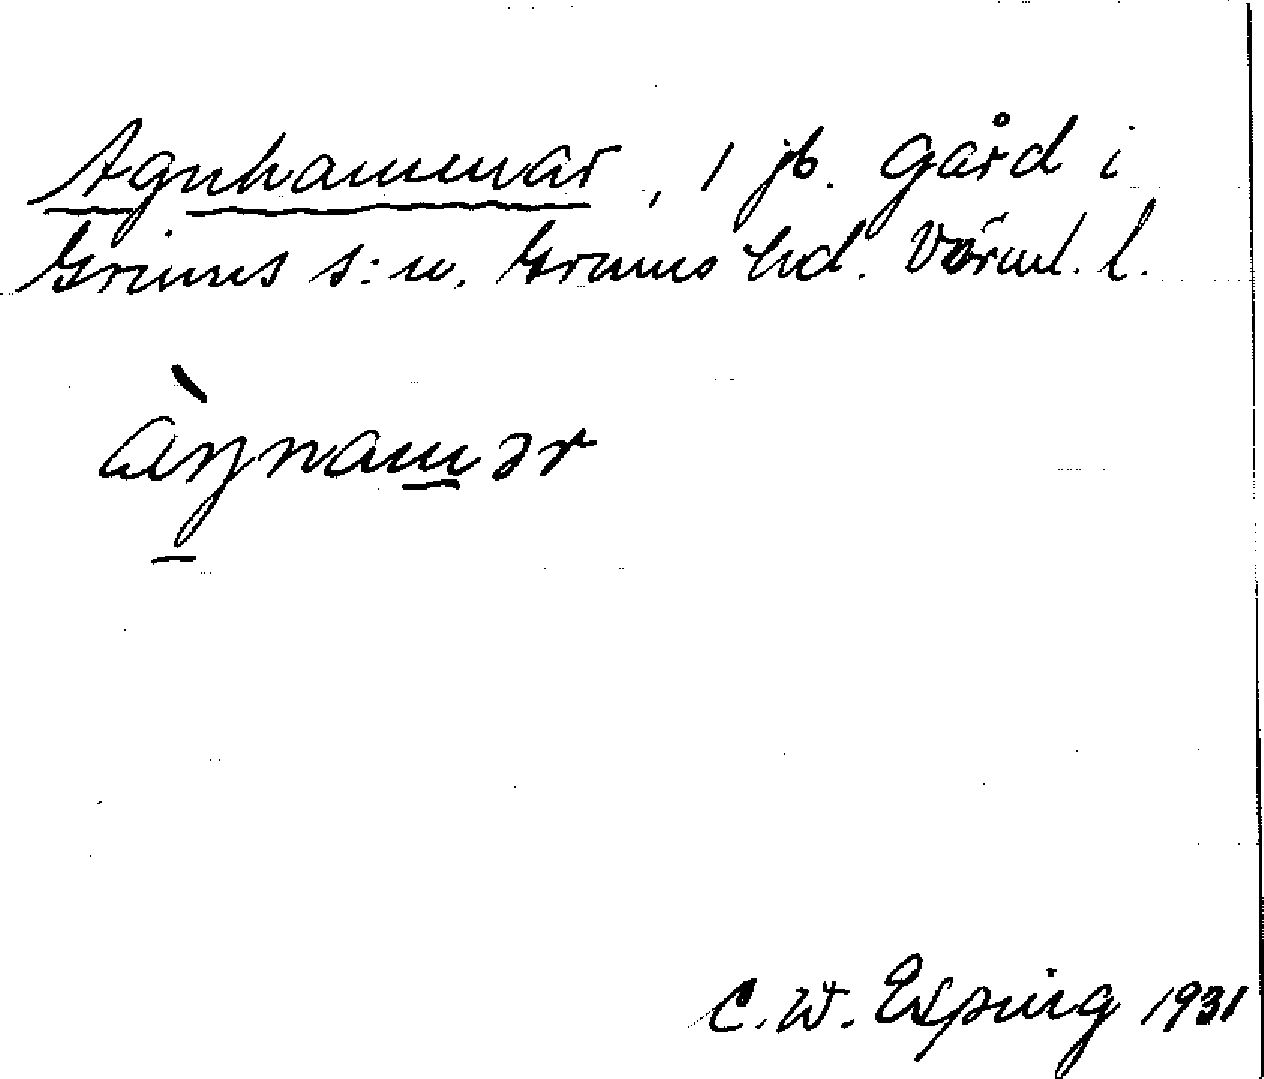 Agnhammar, 1 jb. gård i
Grums s:n. Grums hd. Värml. l.
àŋnamər
C. W. Esping 1931